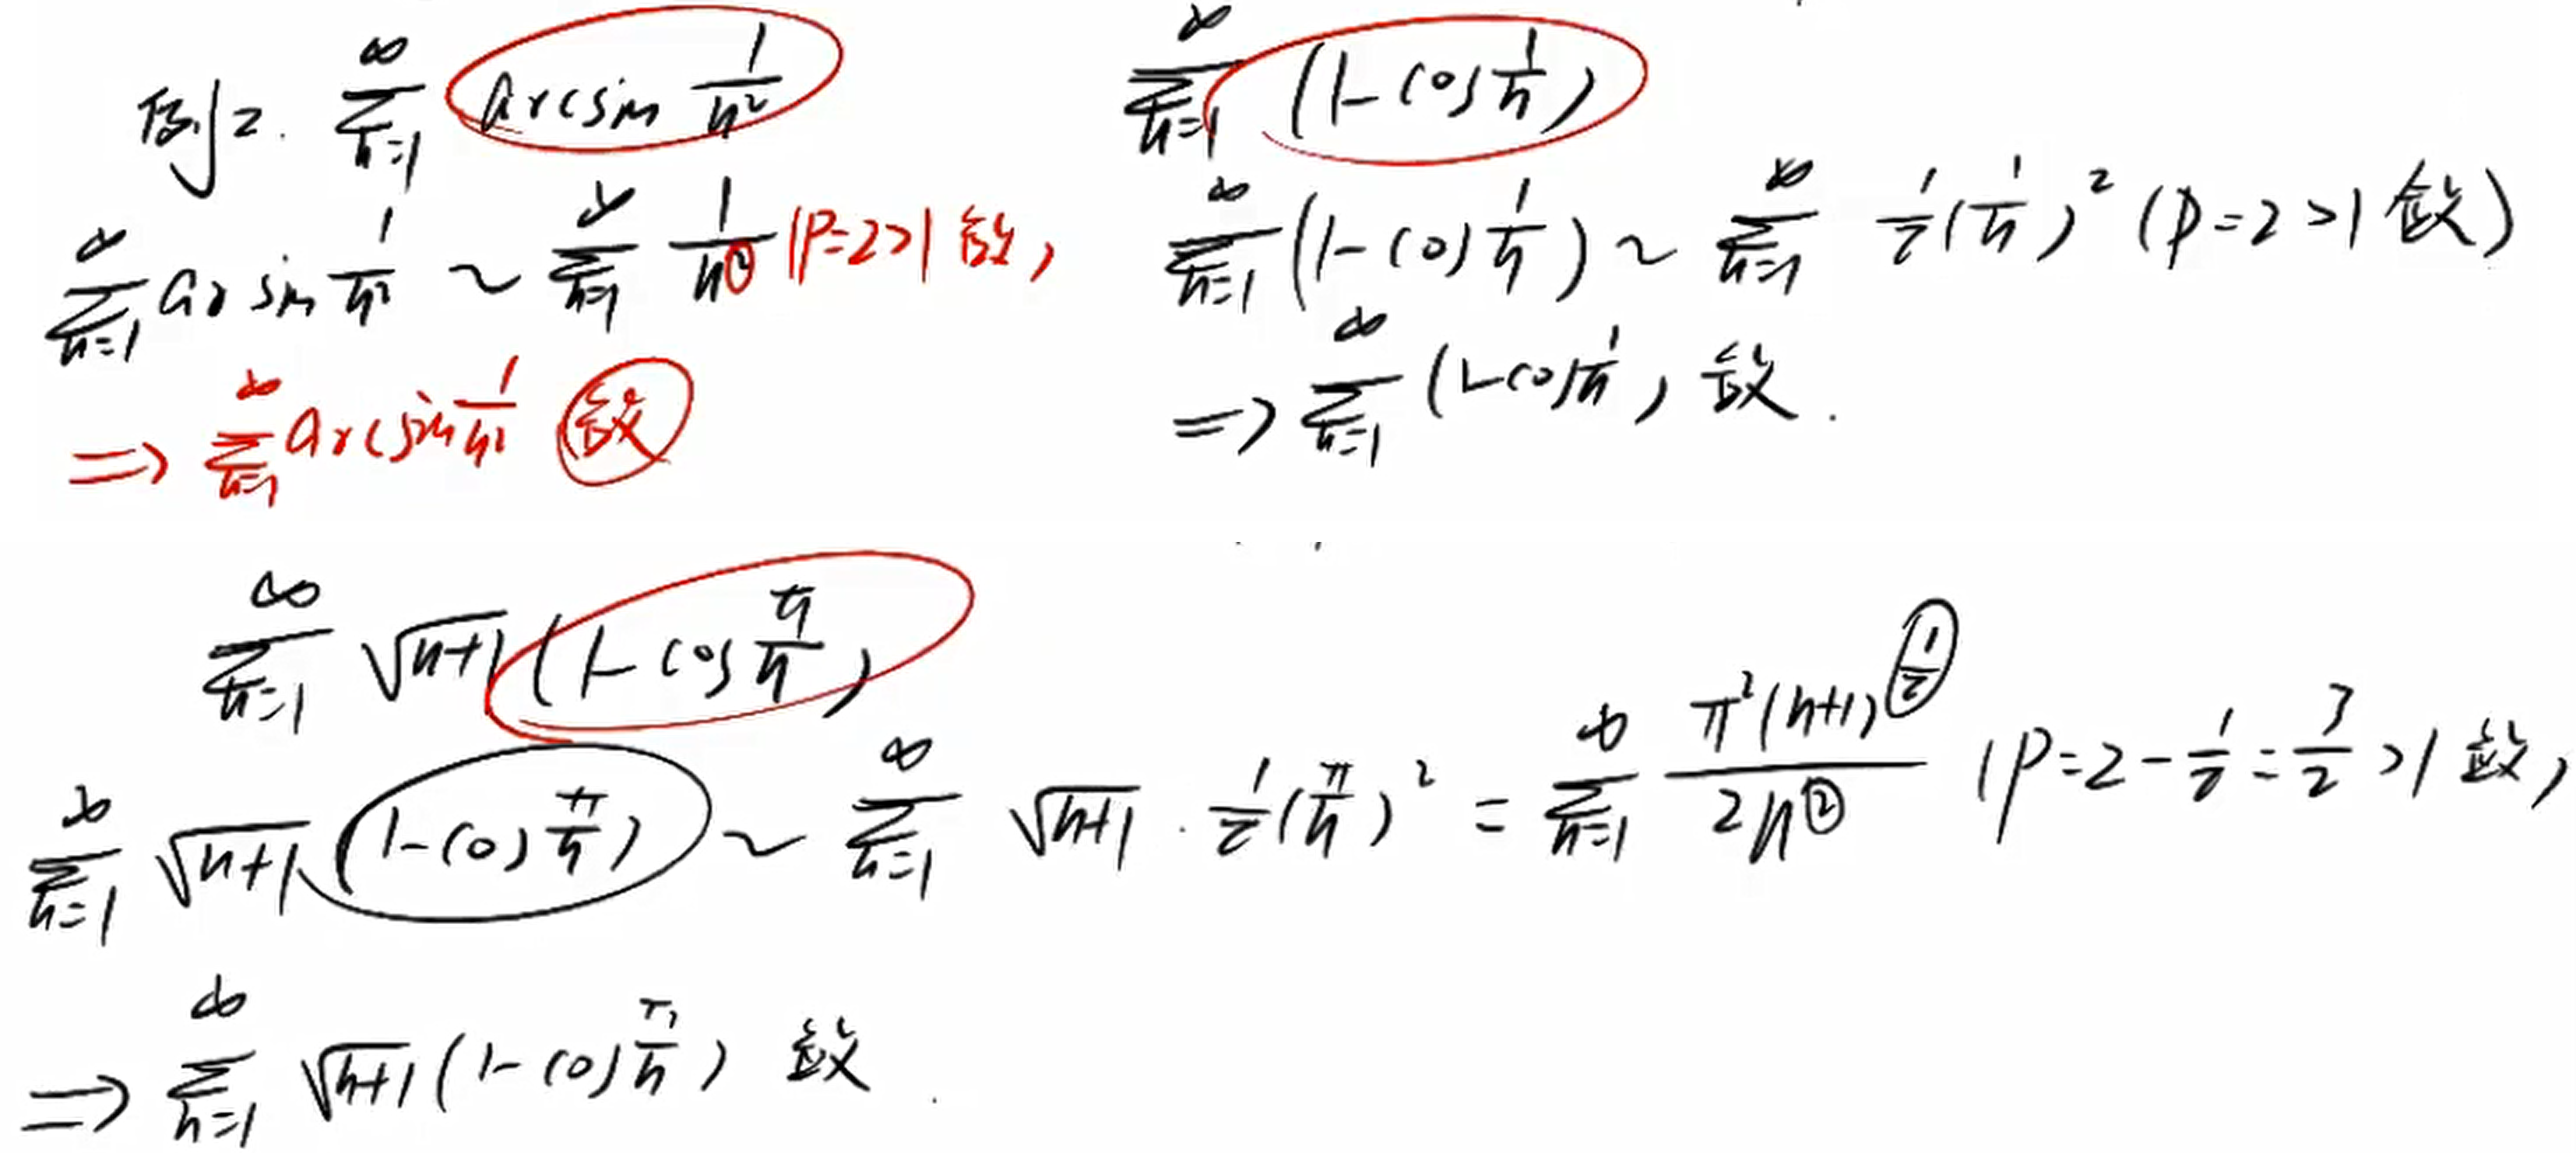 例2. \sum_{n=1}^{\infty} arcsin \frac{1}{n^2}
\sum_{n=1}^{\infty} arsin \frac{1}{n^2} ~ \sum_{n=1}^{\infty} \frac{1}{n^2} (P=2>1 敛)
=> \sum_{n=1}^{\infty} arcsin \frac{1}{n^2} 敛
\sum_{n=1}^{\infty} (1-cos\frac{1}{n})
\sum_{n=1}^{\infty} (1-cos\frac{1}{n}) ~ \sum_{n=1}^{\infty} \frac{1}{2}(\frac{1}{n})^2 (P=2>1 敛)
=> \sum_{n=1}^{\infty} (1-cos\frac{1}{n}) 敛.
\sum_{n=1}^{\infty} \sqrt{n+1} (1-cos\frac{π}{n})
\sum_{n=1}^{\infty} \sqrt{n+1} (1-cos\frac{π}{n}) ~ \sum_{n=1}^{\infty} \sqrt{n+1} · \frac{1}{2}(\frac{π}{n})^2 = \sum_{n=1}^{\infty} \frac{π^2(n+1)^{\frac{1}{2}}}{2n^2} (P=2-\frac{1}{2}=\frac{3}{2}>1 敛)
=> \sum_{n=1}^{\infty} \sqrt{n+1} (1-cos\frac{π}{n}) 敛.